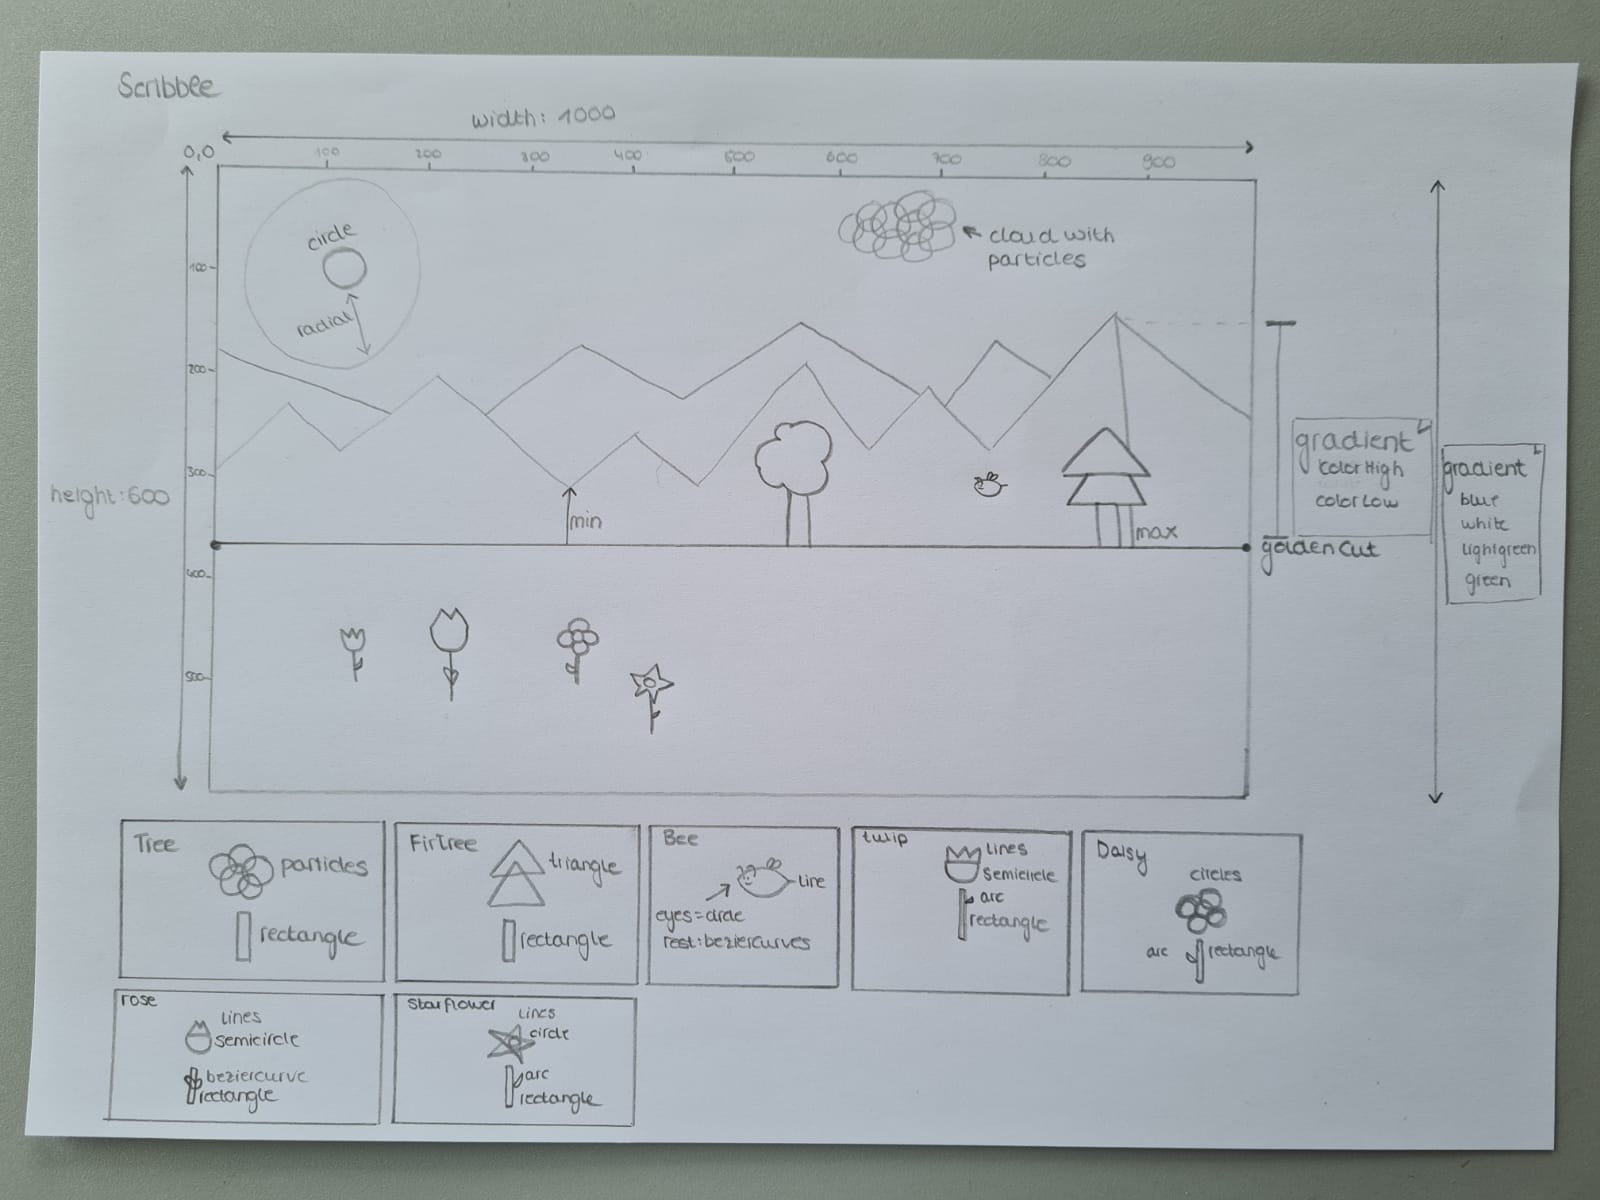 Scribble
width: 1000
0,0
100
200
300
400
500
600
700
800
900
circle
radial
cloud with
particles
100
200
300
height: 600
400
500
min
max
golden cut
gradient
Color High
color Low
gradient
blue
white
lightgreen
green
Tree
particles
rectangle
FirTree
triangle
rectangle
Bee
line
eyes=circle
rest: beziercurves
tulip
lines
semicircle
arc
rectangle
Daisy
circles
arc
rectangle
rose
lines
semicircle
beziercurve
rectangle
Starflower
lines
circle
arc
rectangle